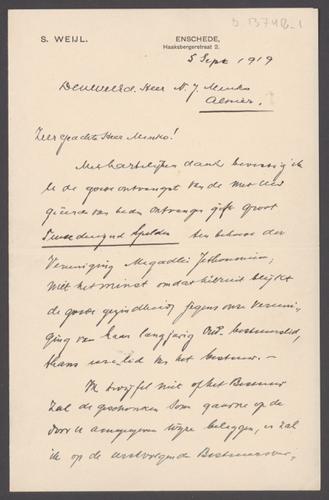 S. WEIJL.
ENSCHEDE,
Haaksbergerstraat 2.
5 Sept 1919
Den Weled. Heer N. J. Menko
Almelo.
Zeer geachte Heer Menko!
Met hartelijken dank bevestig ik
U de goede ontvangst van de met Uw
van heden ontvangen gift groot
Tweeduizend Gulden ten behoeve der
Vereeniging Megadlei Jethomim,
niet het minst omdat hieruit blijkt
de goede gezindheid jegens onze Vereeni-
ging van haar langjarig Oud. bestuurslid,
thans eerelid van het bestuur. —
Ik twijfel niet of het Bestuur
zal de geschonken som gaarne op de
door U aangegeven wijze beleggen, en zal
ik op de eerstvolgende Bestuursver-